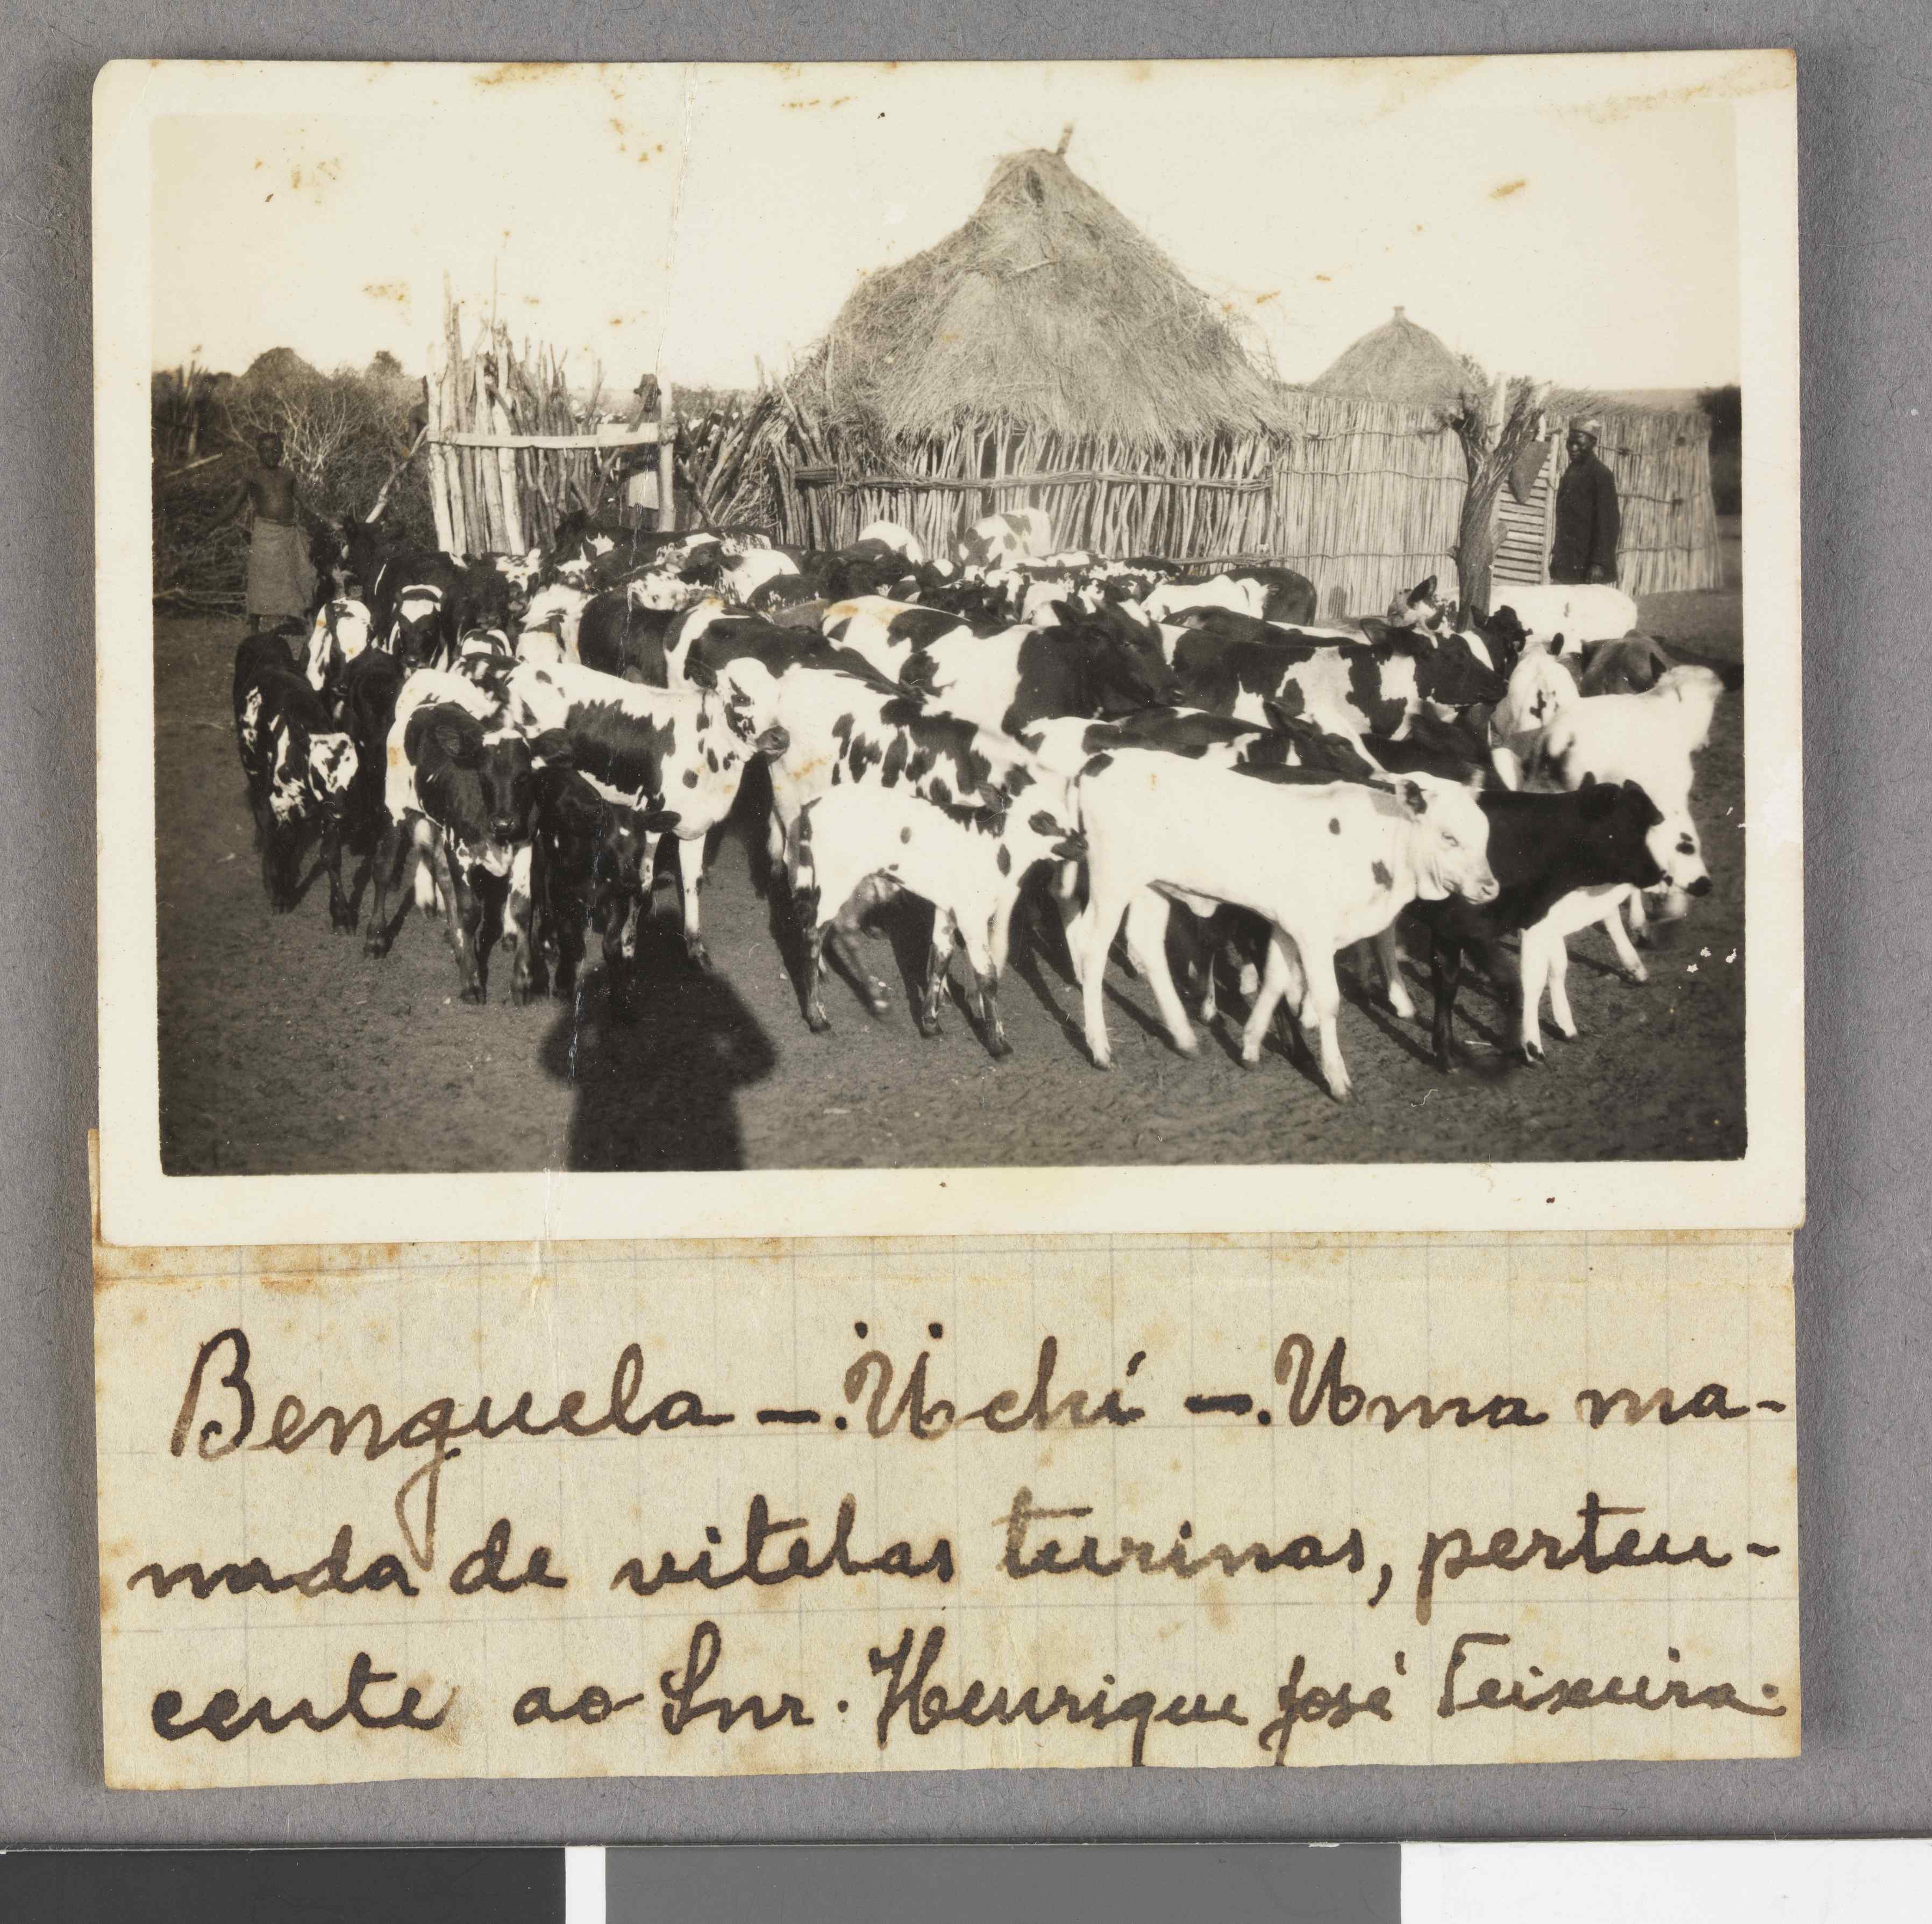 Benguela – Uchí – Uma ma-
nada de vitelas turinas, perten-
cente ao Snr. Henrique José Teixeira.